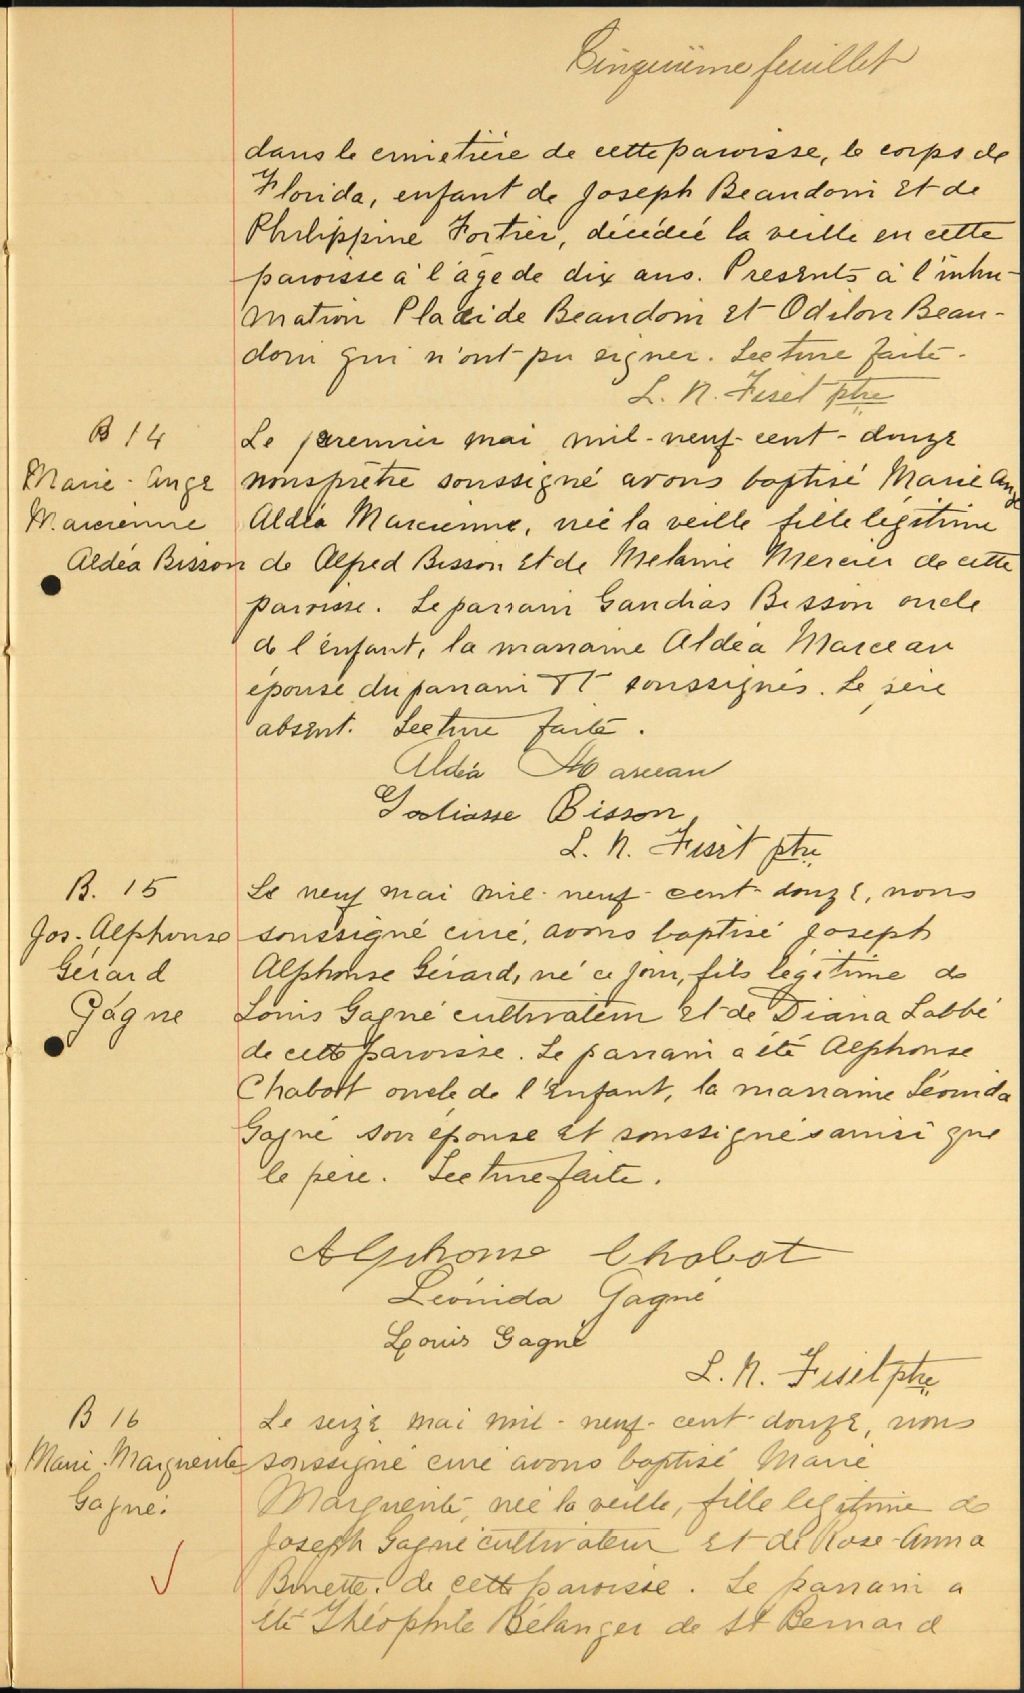 Cinquième feuillet
dans le cimetière de cette paroisse, le corps de
Florida, enfant de Joseph Beaudoin et de
Philippine Fortier, décédée la veille en cette
paroisse à l'âge de dix ans. Présents à l'inhu-
mation Placide Beaudoin et Odilon Beau-
doin qui n'ont pu signer. Lecture faite.
L. N. Fiset ptre
B 14
Marie-Ange
Marcienne
Aldéa Bisson
Le premier mai mil-neuf-cent-douze
nous prêtre soussigné avons baptisé Marie Ange
Aldéa Marcienne, née la veille fille légitime
de Alfred Bisson et de Mélanie Mercier de cette
paroisse. Le parrain Gaudias Bisson oncle
de l'enfant, la marraine Aldéa Marceau
épouse du parrain et soussignés. Le père
absent. Lecture faite.
Aldéa Marceau
Godiasse Bisson
L. N. Fiset ptre
B. 15
Jos-Alphonse
Gérard
Gagne
Le neuf mai mil-neuf-cent-douze, nous
soussigné curé, avons baptisé Joseph
Alphonse Gérard, né ce jour, fils légitime de
Louis Gagné cultivateur et de Diana Labbé
de cette paroisse. Le parrain a été Alphonse
Chabot oncle de l'enfant, la marraine Léonida
Gagné son épouse et soussignés ainsi que
le père. Lecture faite.
Alphonse Chabot
Léonida Gagné
Louis Gagné
L. N. Fiset ptre
B 16
Marie-Marguerite
Gagné.
Le seize mai mil-neuf-cent-douze, nous
soussigné curé avons baptisé Marie
Marguerite, née la veille, fille légitime de
Joseph Gagné cultivateur et de Rose-Anna
Binette. de cette paroisse. Le parrain a
été Théophile Bélanger de St Bernard